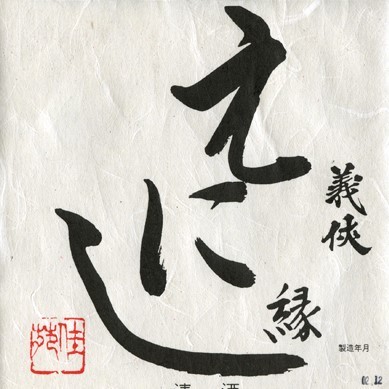 えにし
義侠
縁
製造年月
02.12
清酒